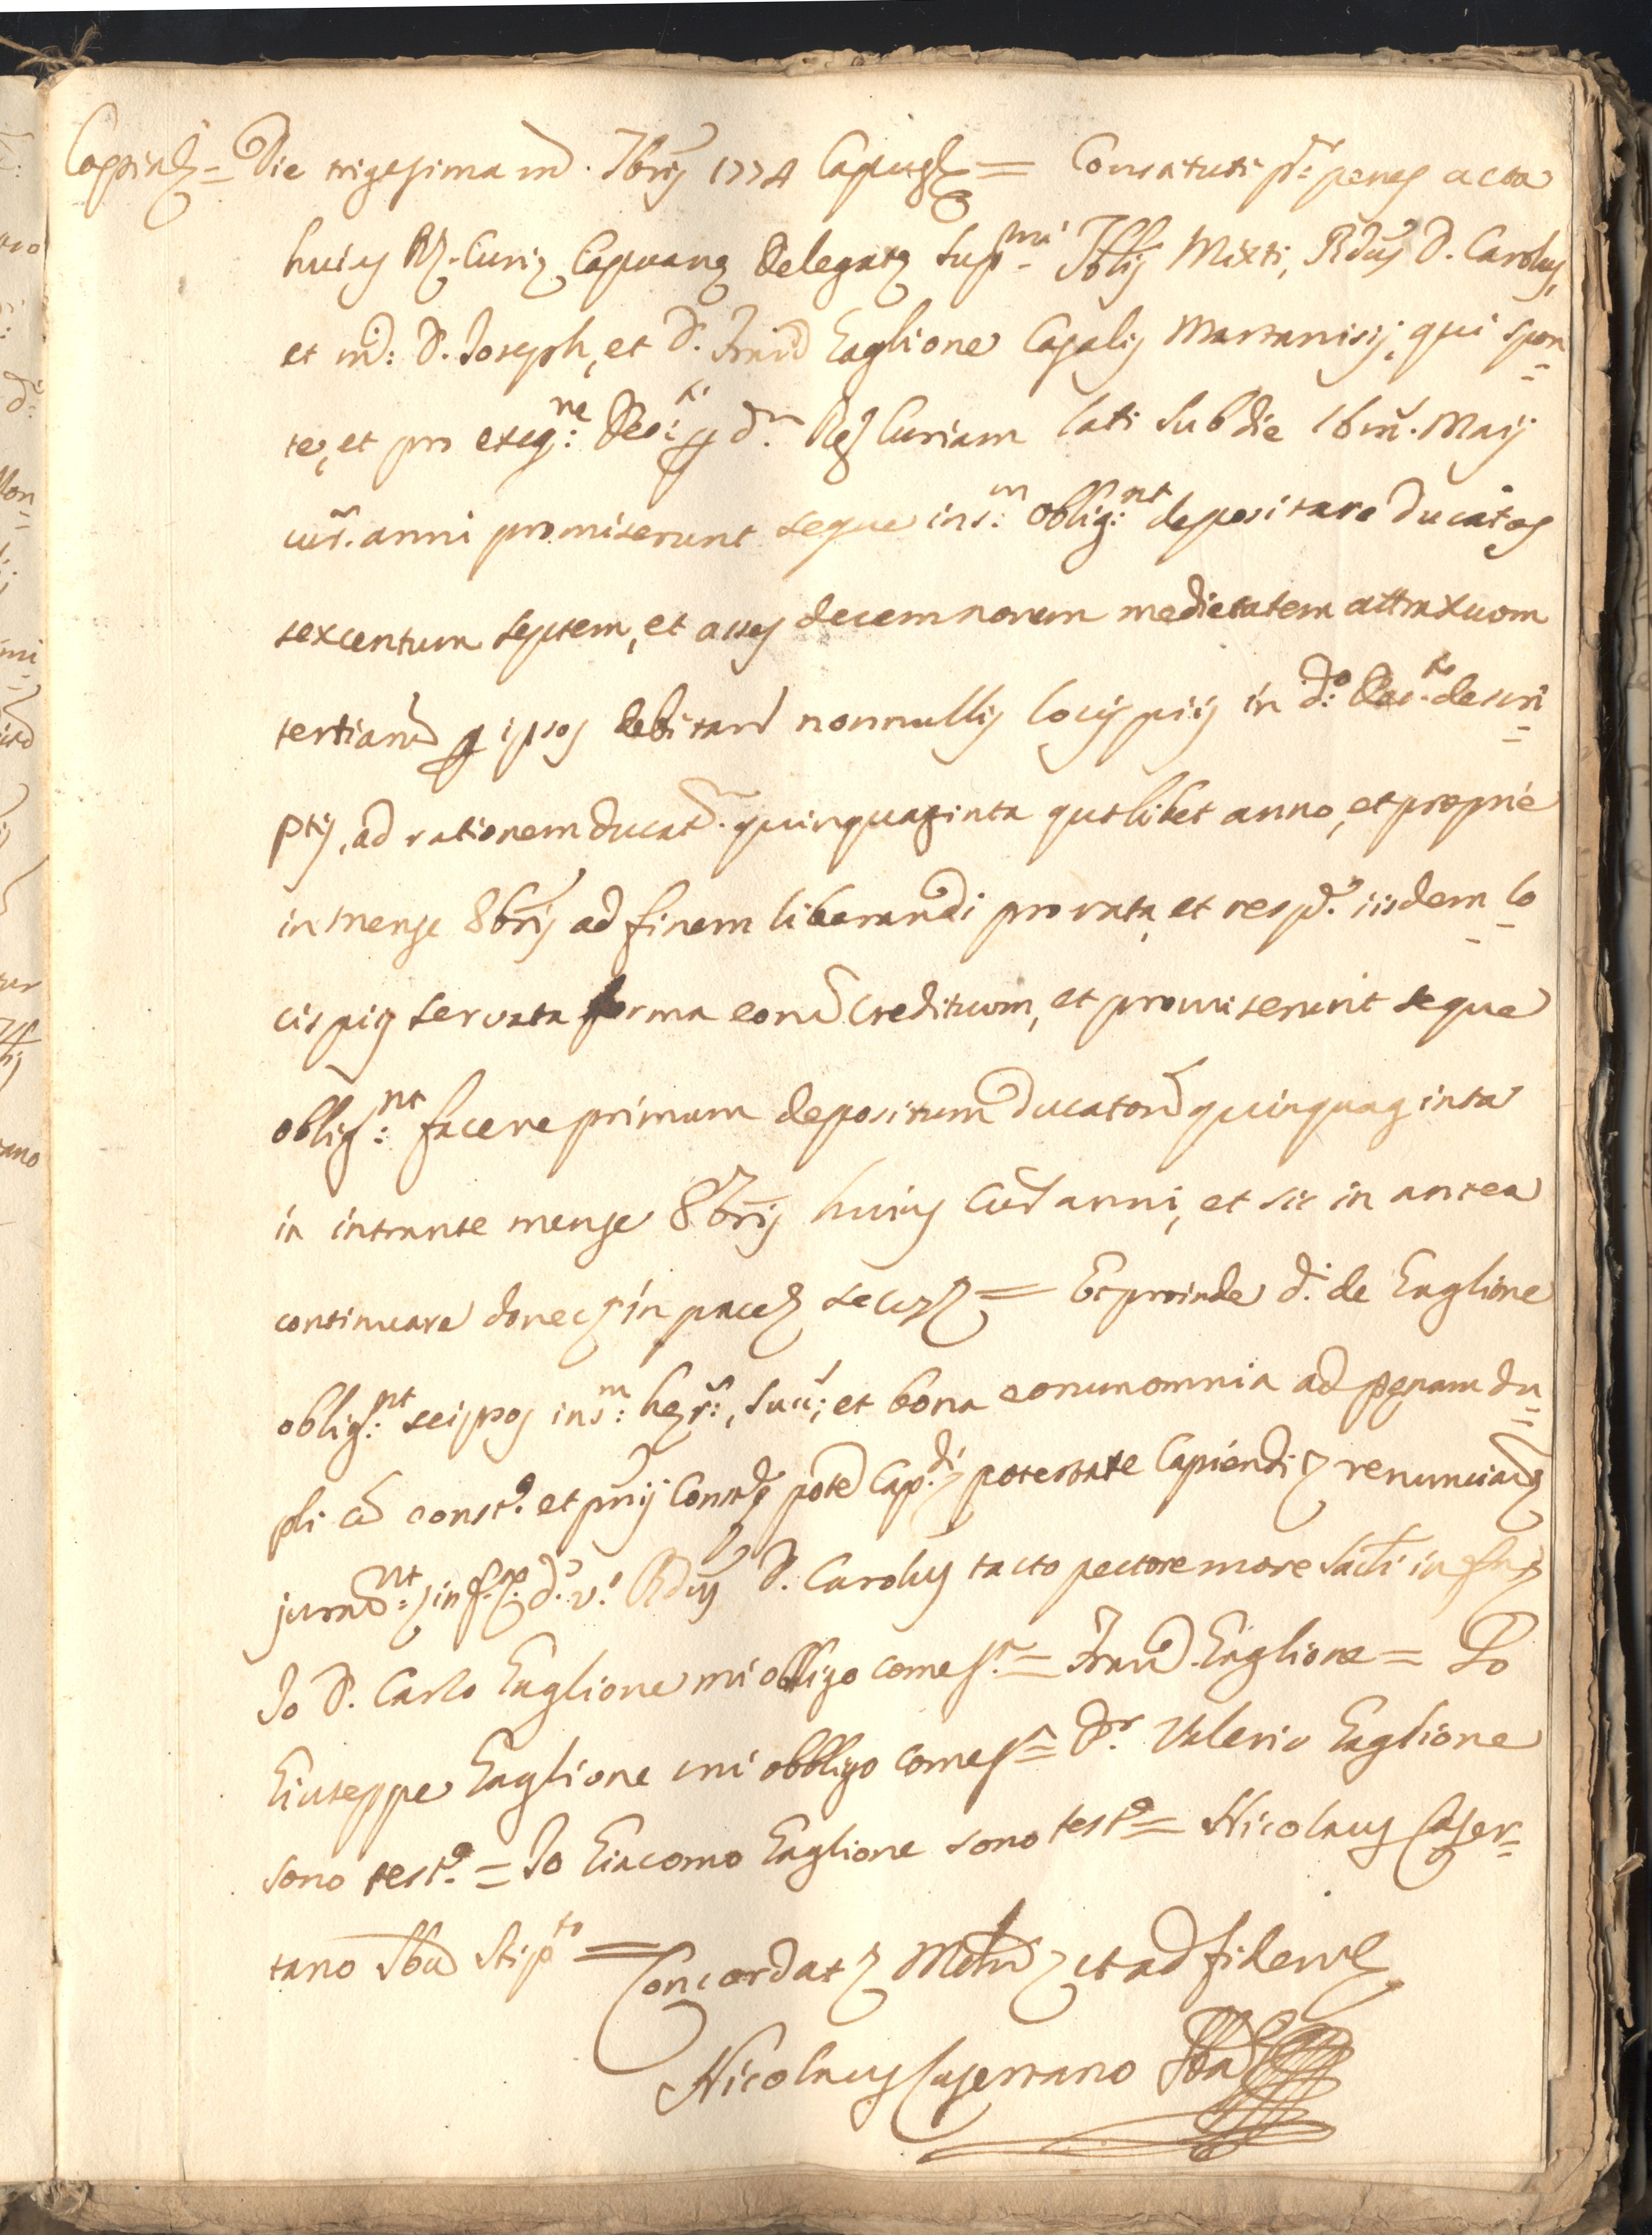 Die trigesima m. 7bris 1774 Capuę = Constituti pr. penes acta
huius Rę. Curię Capuanę Delegatę Sup.mi Tblis Mixti, Rdus D. Carolus,
et m: D. Joseph, et D. Franc Taglione Casalis Martianisij, qui spon=
te, et pro exeq:ne Dec:ti per d.m Reg Curiam lati sub die 16 m. Maij
curr. anni promiserunt seque ins:m oblig:nt depositare ducatos
sexcentum septem, et asses decemnovem medietatem attraxuom
tertiarum per ipsos debitarum nonnullis locis piis in d:o Dec.to descri=
ptis, ad rationem ducat. quinquaginta quolibet anno, et proprie
in mense 8bris ad finem liberandi pro rata, et resp.e iisdem lo=
cis piis servata forma eorum credituom, et promiserunt seque
oblig:nt facere primum depositum ducatorum quinquaginta
in intrante mense 8bris huius curr anni, et sic in antea
continuare donec in pace = Et proinde d.i de Taglione
oblig:nt seipsos ins:m her:, succ:, et bona eorum omnia ad penam du=
pli cum const.e et prij pote cap.di potestate capiendi renunciarunt
jurarunt d. v.o Rdus D. Carolus tacto pectore more sacerdotali
Io D. Carlo Taglione mi obligo come s.a = Franc. Taglione = Io
Giuseppe Taglione mi obbligo come s.a = D.r Valerio Taglione
sono test.e = Io Giacomo Taglione sono test.e = Nicolaus Caser=
tano Sba Stip.to =
Concordat et ad fidem
Nicolaus Casertano Sba